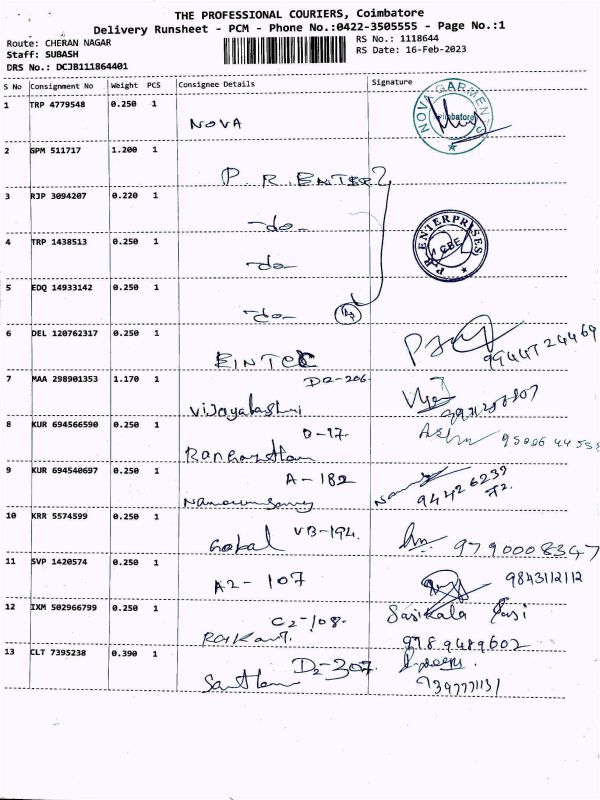 THE PROFESSIONAL COURIERS, Coimbatore
Delivery Runsheet - PCM - Phone No.:0422-3505555 - Page No.:1
Route: CHERAN NAGAR
RS No.: 1118644
Staff: SUBASH
RS Date: 16-Feb-2023
DRS No.: DCJB111864401
S No Consignment No Weight PCS Consignee Details Signature
1 TRP 4779548 0.250 1
NOVA
NOVA GARMENTS Coimbatore
2 GPM 511717 1.200 1
P. R. ENTER
3 RJP 3094207 0.220 1
-do-
P.R ENTERPRISES CBE
4 TRP 1438513 0.250 1
-do-
5 EDQ 14933142 0.250 1
-do- 4
6 DEL 120762317 0.250 1
EINTEC
9944724469
7 MAA 298901353 1.170 1
D2-206
Vijayalashmi
8 KUR 694566590 0.250 1
D-17
9 KUR 694540697 0.250 1
A-182
94426239
72
10 KRR 5574599 0.250 1
VB-194
Gobal
9790008347
11 SVP 1420574 0.250 1
A2-107
9843112112
12 IXM 502966799 0.250 1
C2-108
Sasikala Sasi
9789489602
13 CLT 7395238 0.390 1
D2-307